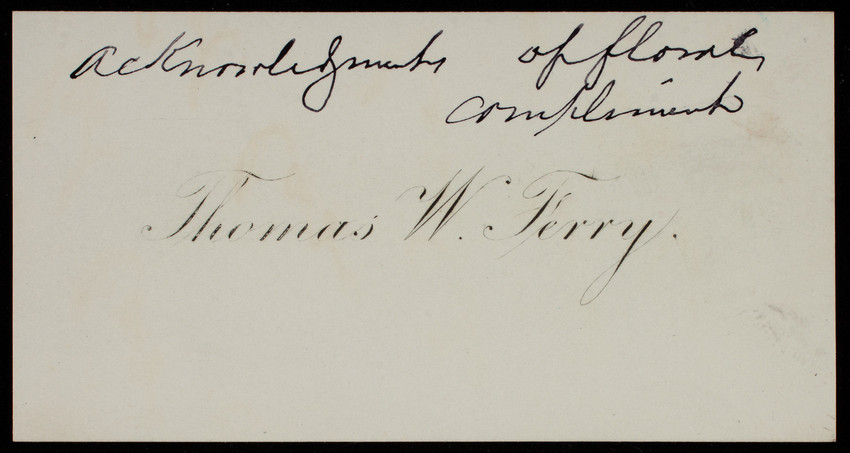 acknowledgments of floral
compliment
Thomas W. Ferry.